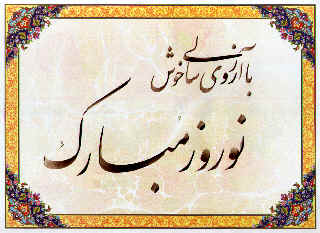 با آرزوی سالی خوش
نوروز مبارک